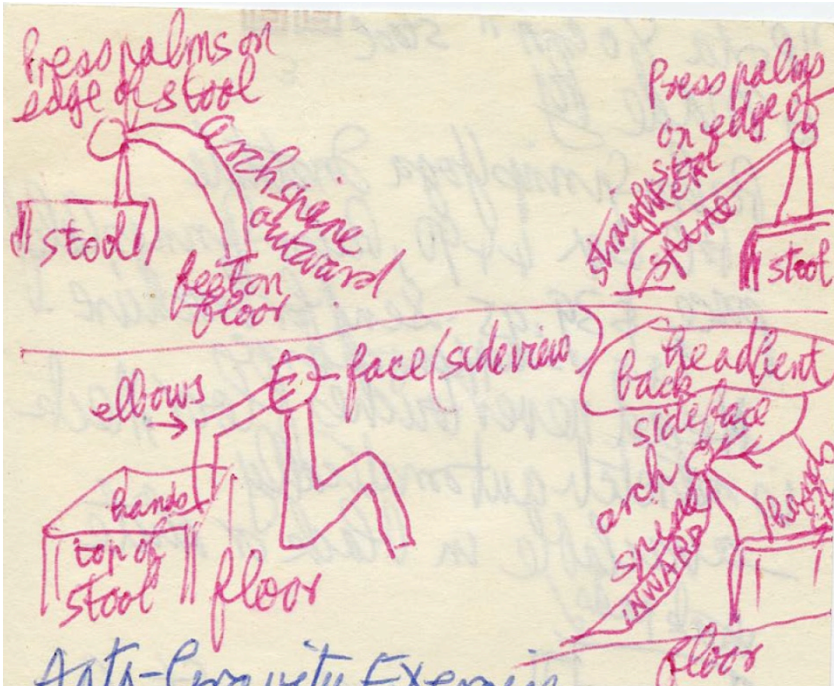 Press palms on
edge of stool
arch spine
outward
stool
feet on
floor
Press palms
on edge of
stool
straighten
spine
stool
elbows
face (side view)
hands
top of
stool
floor
head bent
back
side face
arch
spine
INWARD
hands
floor
Anti-Gravity Exercis